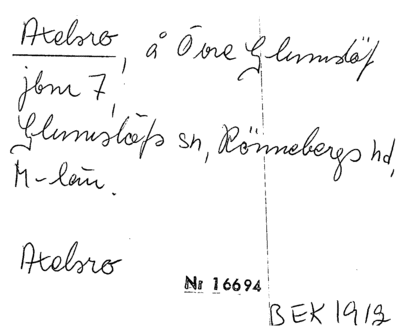 Axelsro, å Övre Glumslöf
jbnr 7,
Glumslöfs sn, Rönnebergs hd,
M-län.
Axelsro
Nr 16694
BEK 1912